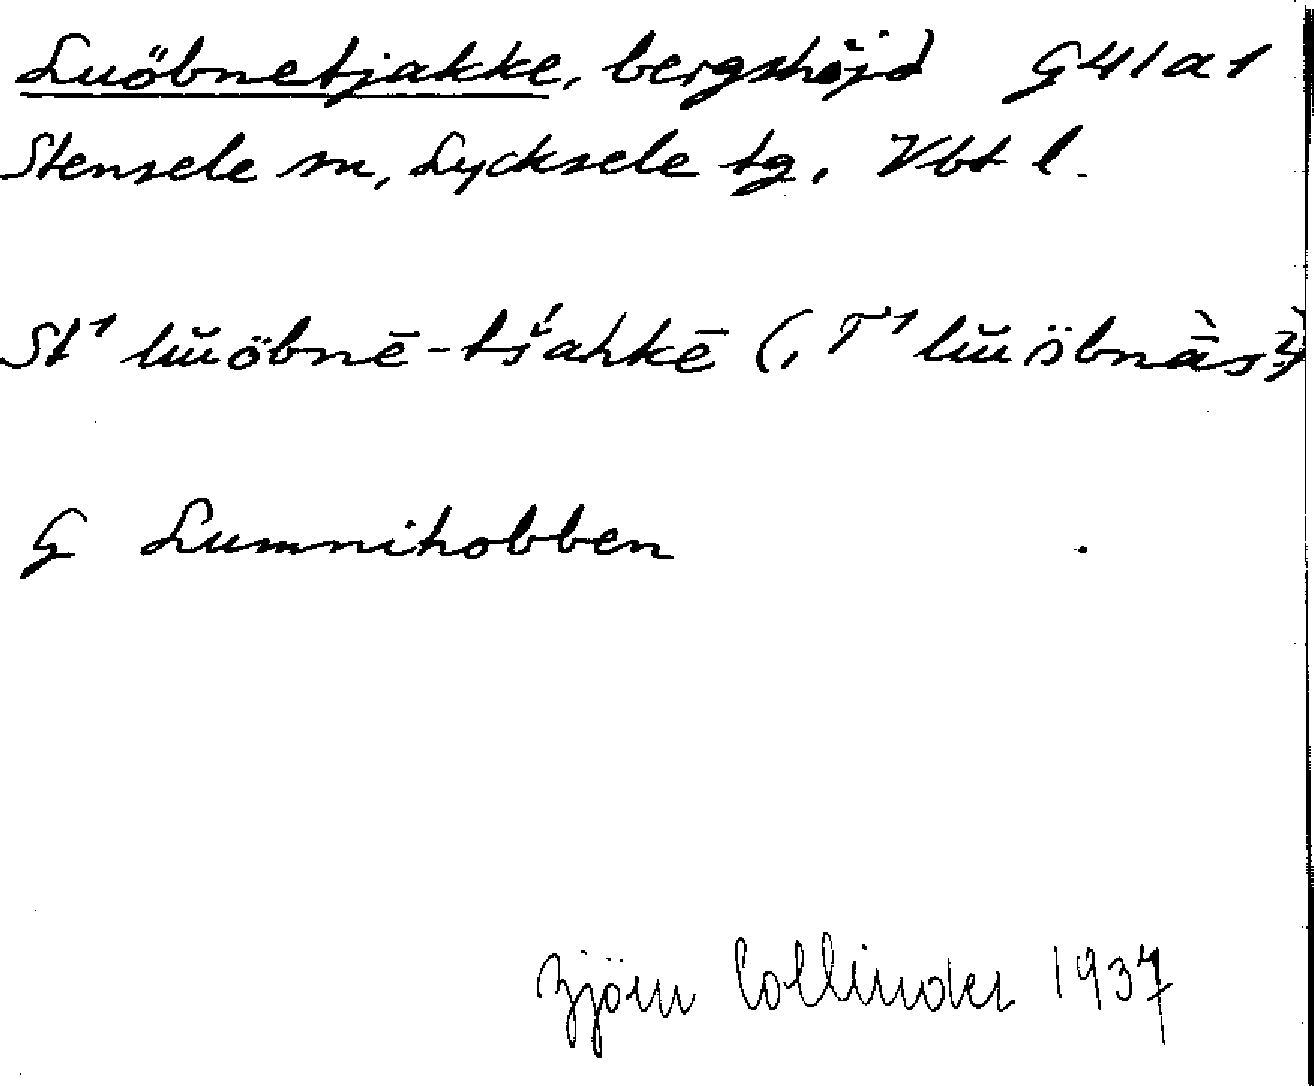 Luöbnetjakke, bergshöjd G41a1
Stensele sn, Lycksele tg. Vbt l.
St¹ lŭŭöbnē-tś'ahkē (, T¹ lŭŭöbnàs?)
G Lumnihobben
Björn Collinder 1937